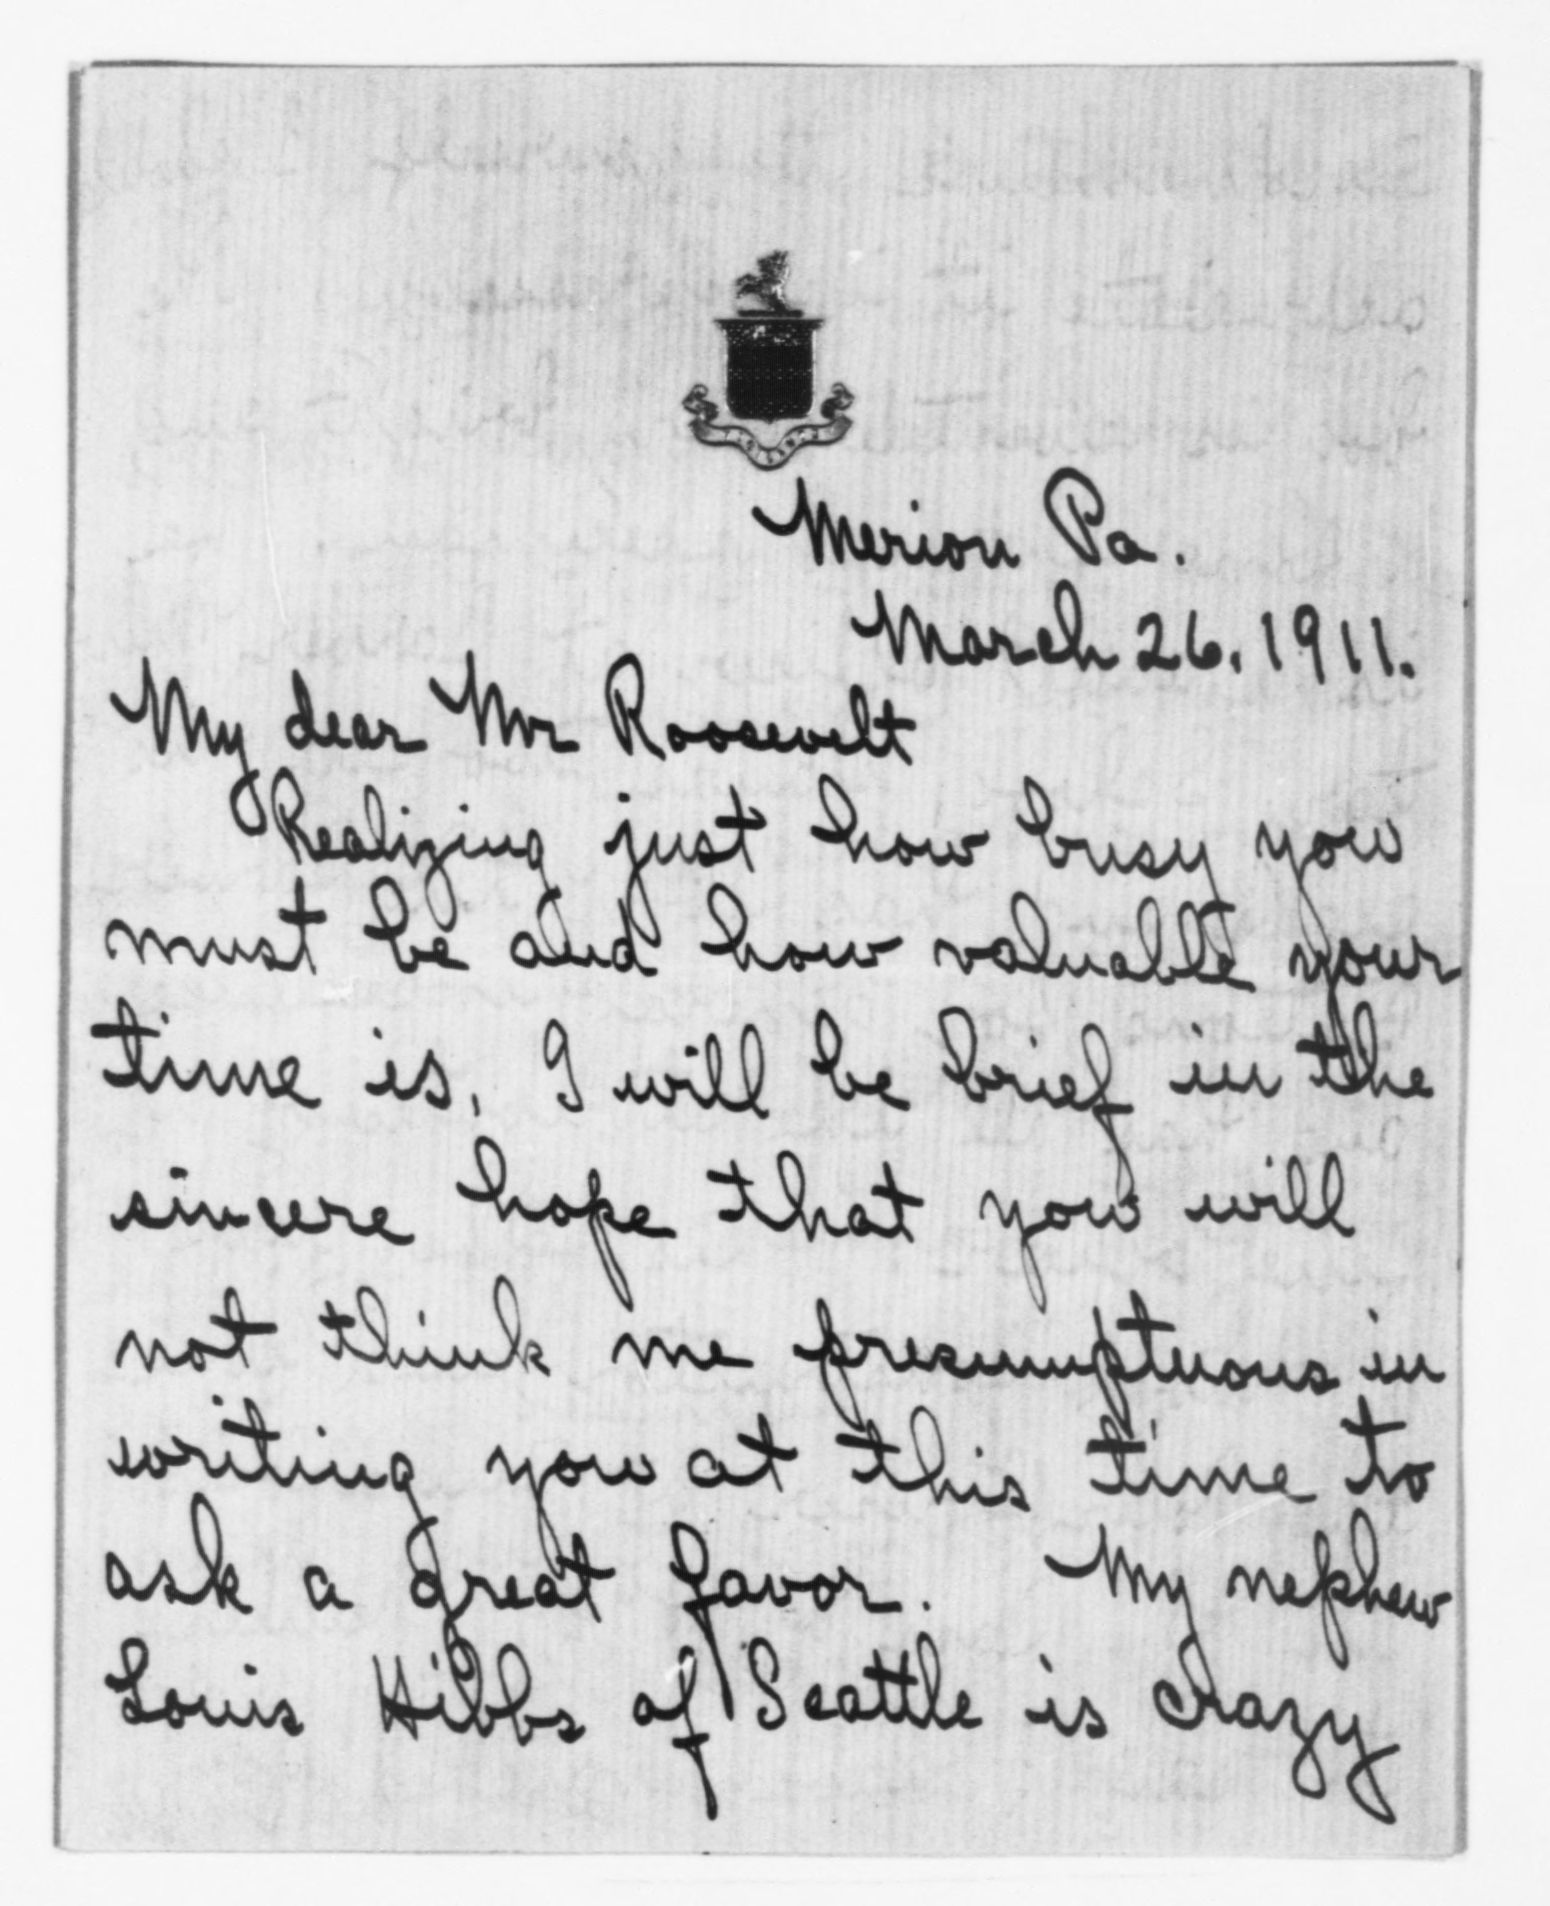 Merion Pa.
March 26. 1911.
My dear Mr Roosevelt
Realizing just how busy you
must be and how valuable your
time is, I will be brief in the
sincere hope that you will
not think me presumptuous in
writing you at this time to
ask a great favor. My nephew
Louis Hibbs of Seattle is crazy